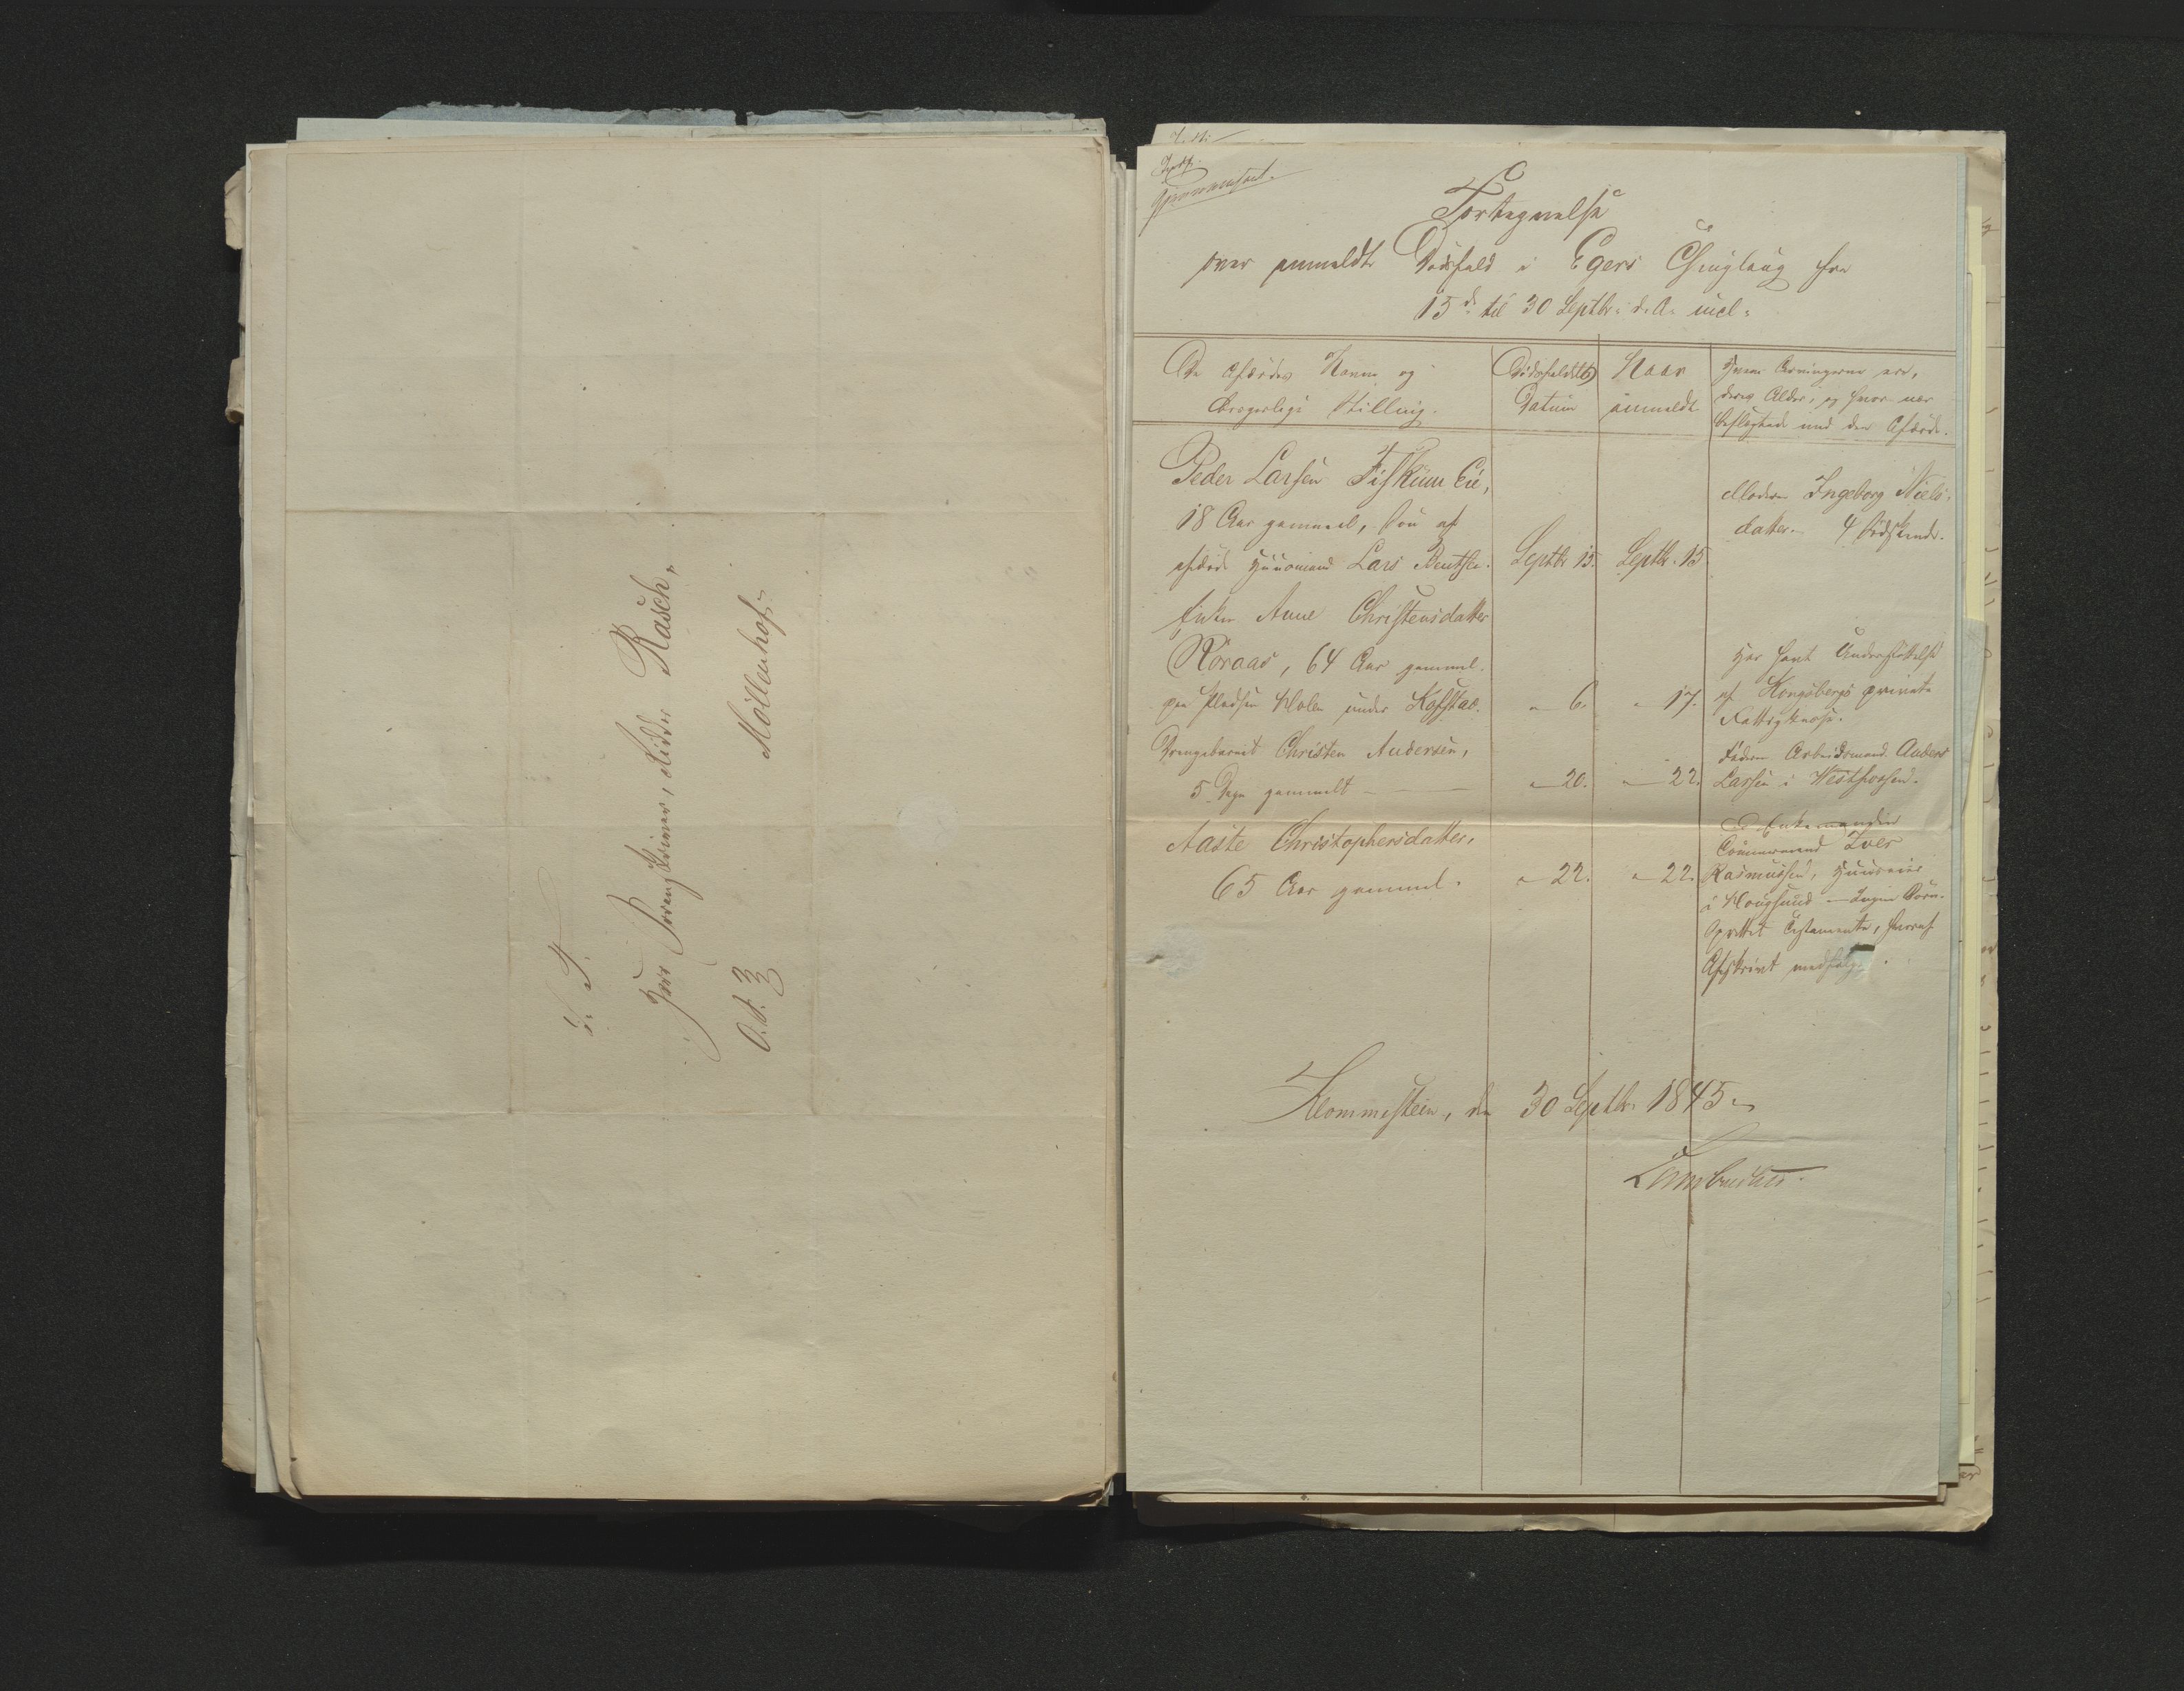 S. T.
Herr Sorenskriver, Ridder Rasch,
Möllenhof.
O. S. 33
Fortegnelse
over anmeldte Dødsfald i Egers Thinglaug fra
15de til 30 Septbr: d. A. incl:
De Afdødes Navne og
borgerlige Stilling.
Dødsfaldets
Datum
Naar
anmeldt
Hvem Arvingerne ere,
deres Alder, og hvor nær
beslægtede med den Afdøde.
Peder Larsen Fiskum Eie,
18 Aar gammel, Søn af
afdøde Huusmand Lars Bentsen.
Septbr 15.
Septbr. 15
Moderen Ingeborg Niels-
datter. 4 Sødskende.
Enken Anne Christensdatter
Roraas, 64 Aar gammel.
paa Pladsen Molen under Kofstad.
" 6.
" 17.
Har havt Understøttelse
af Kongsbergs private
Fattigkasse.
Drengebarnet Christen Andersen,
5 Dage gammelt
" 20.
" 22.
Faderen Arbeidsmand Anders
Larsen i Westfossen.
Aaste Christophersdatter,
65 Aar gammel.
" 22.
" 22.
Enkemanden
Iver
Rasmussen, Huuseier
i Hougsund — Ingen Børn.
Oprettet Testamente, hvoraf
Afskrivt medfølger.
Klommesteen, den 30 Septbr. 1845.